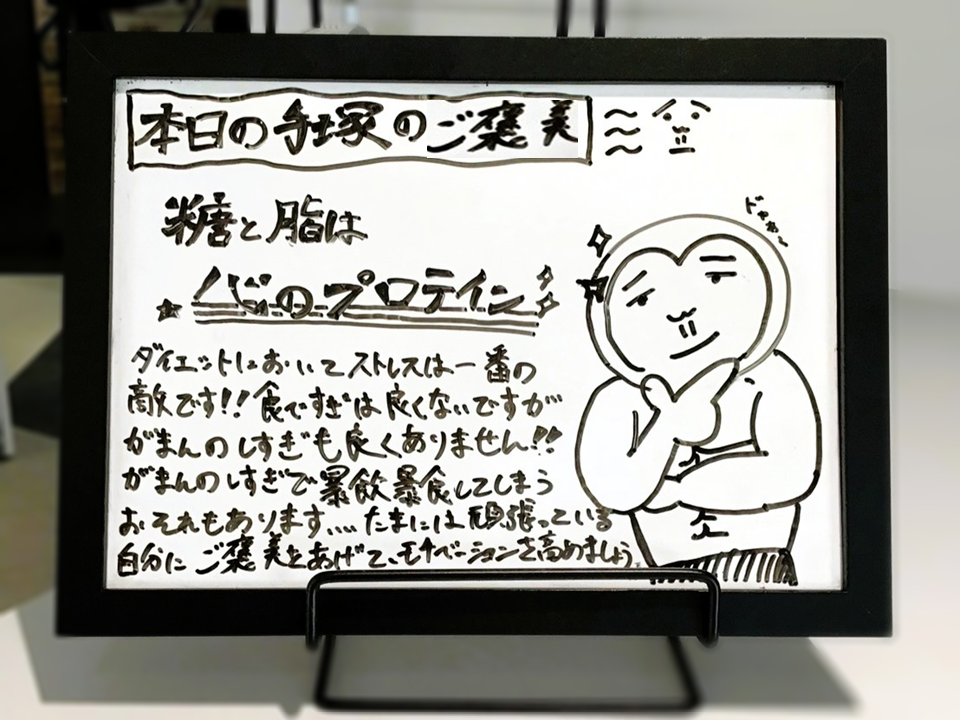 本日の手塚のご褒美
糖と脂は
心のプロテイン
ドヤァ〜
ダイエットにおいてストレスは一番の
敵です!!食べすぎは良くないですが
がまんのしすぎも良くありません!!
がまんのしすぎで暴飲暴食してしまう
おそれもあります....たまには頑張っている
自分にご褒美をあげて、モチベーションを高めましょう。